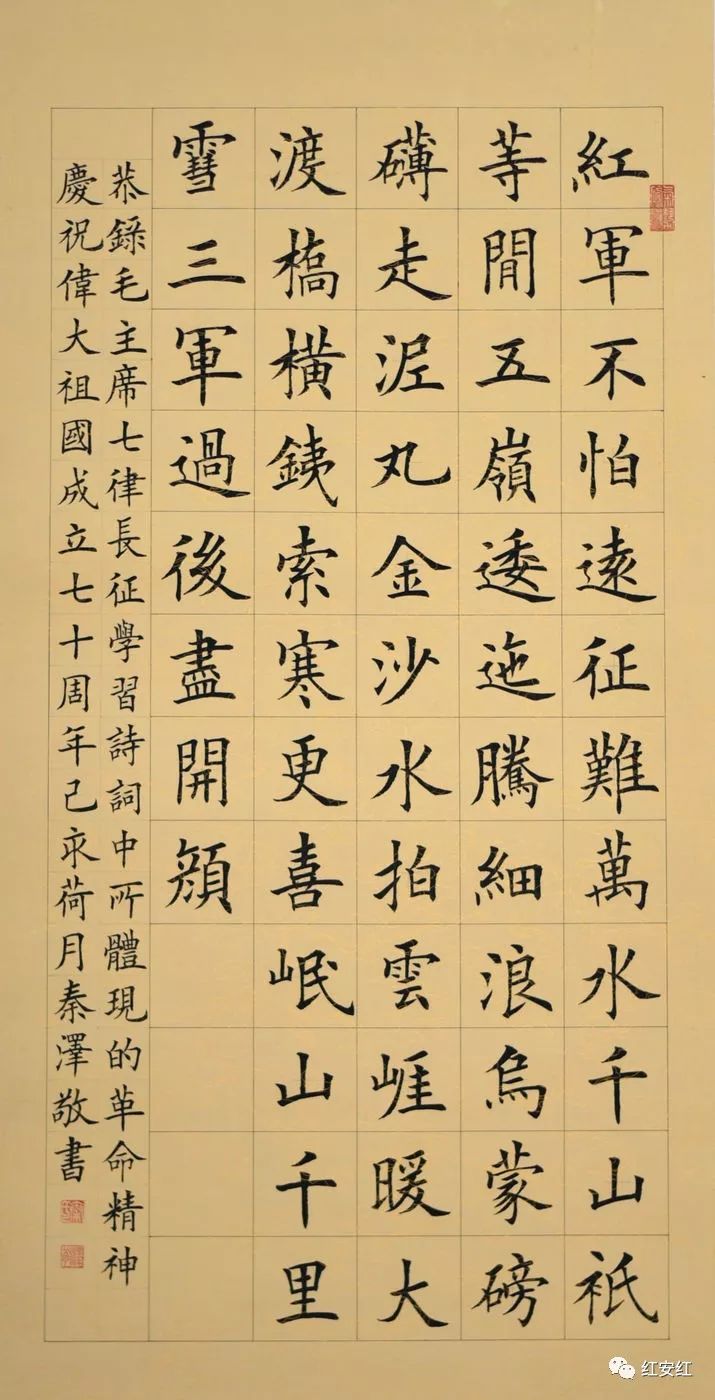 紅軍不怕遠征難萬水千山祇
等閒五嶺逶迤騰細浪烏蒙磅
礴走泥丸金沙水拍雲崕暖大
渡橋橫鐵索寒更喜岷山千里
雪三軍過後盡開顏
恭錄毛主席七律長征學習詩詞中所體現的革命精神
慶祝偉大祖國成立七十周年己亥荷月秦澤敬書
红安红